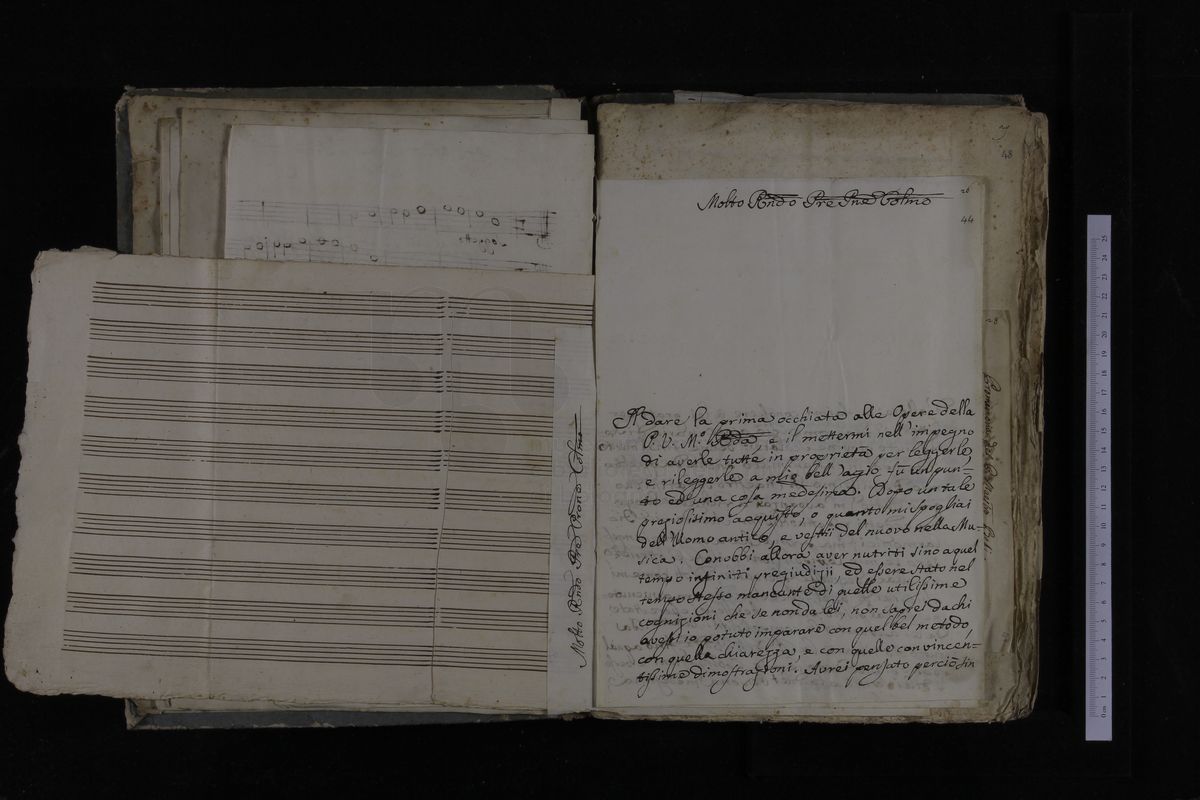 Molto Rndo Pre Prone Colmo
7
48
Molto Rndo Pre Pne Colmo
26
44
Il dare la prima occhiata alle Opere della
P. V. M.º Rda, e il mettermi nell'impegno
di averle tutte in proprietà per leggerle,
e rileggerle a mio bell'agio fù un pun-
to ed una cosa medesima. Dopo un tale
graziosissimo acquisto, o quanto mi spogliai
dell'Uomo antico, e vestii del nuovo nella Mu-
sica. Conobbi allora aver nutriti sino a quel
tempo infiniti pregiudizji, ed essere stato nel
tempo stesso mancante di quelle utilissime
cognizioni, che se non da lei, non saprei da chi
avessi io potuto imparare con quel bel metodo,
con quella chiarezza, e con quelle convincen-
tissime dimostrazioni. Avrei pensato perciò sin
28